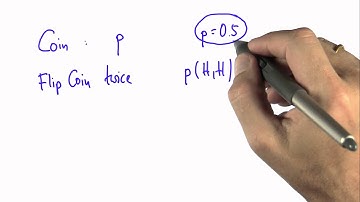 Coin : p
p=0.5
Flip Coin twice
p(H,H)